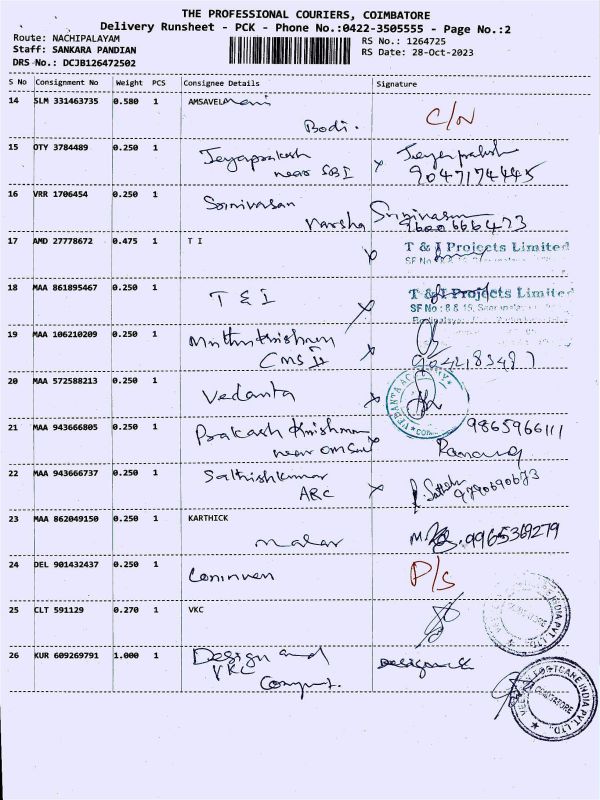 THE PROFESSIONAL COURIERS, COIMBATORE
Delivery Runsheet - PCK - Phone No.:0422-3505555 - Page No.:2
Route: NACHIPALAYAM
Staff: SANKARA PANDIAN
DRS No.: DCJB126472502
RS No.: 1264725
RS Date: 28-Oct-2023
S No Consignment No Weight PCS Consignee Details Signature
14 SLM 331463735 0.580 1 AMSAVEL
Bodi. C/N
15 OTY 3784489 0.250 1 Jeyaprakash Jeyaprakash
near SBI 9047174445
16 VRR 1706454 0.250 1 Srinivasan
Varsha Srinivasan
9600666473
17 AMD 27778672 0.475 1 T I T & I Projects Limited
SF No
18 MAA 861895467 0.250 1 T & I T & I Projects Limited
SF No : 8 & 15,
19 MAA 106210209 0.250 1 Muthukrishnan
CMS II
20 MAA 572588213 0.250 1 Vedanta
21 MAA 943666805 0.250 1 Prakash Krishnan 9865966111
near
22 MAA 943666737 0.250 1 Sathishkumar
ARC 9790690673
23 MAA 862049150 0.250 1 KARTHICK
Malar 9965369279
24 DEL 901432437 0.250 1 P/S
25 CLT 591129 0.270 1 VKC
26 KUR 609269791 1.000 1 Design and
VKC
COIMBATORE